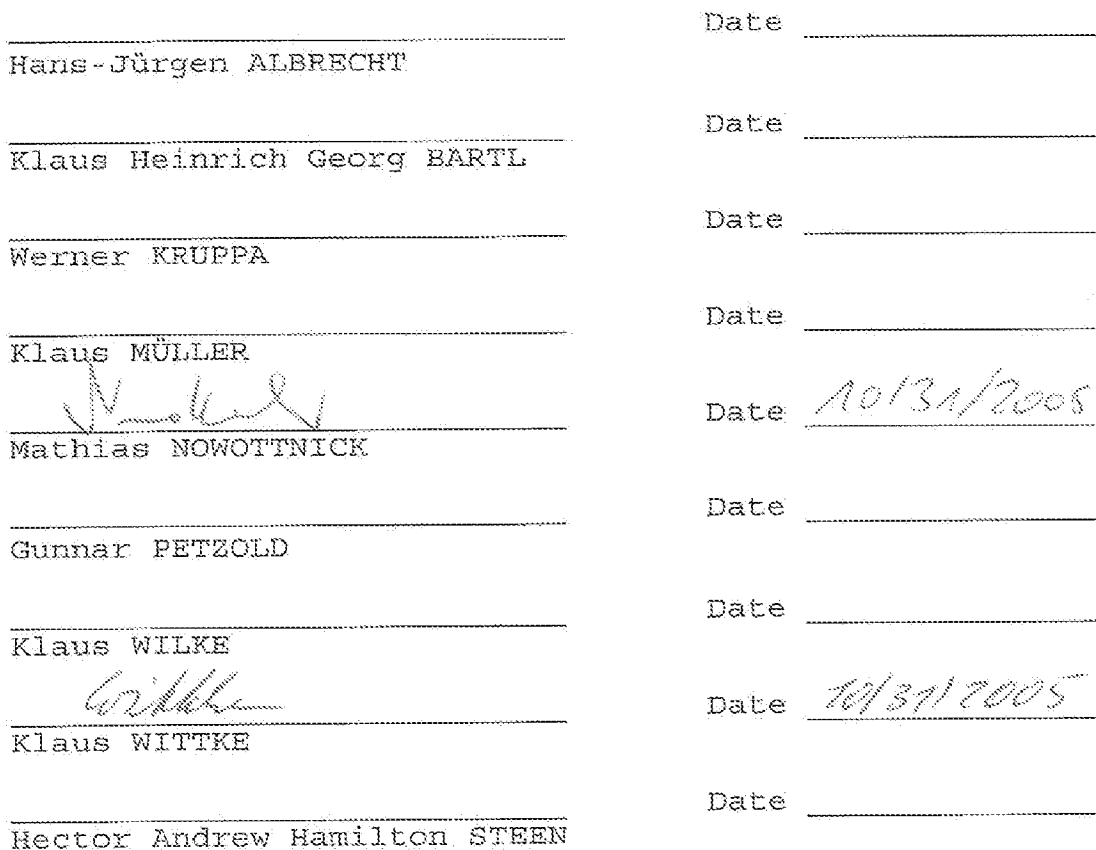 Date
Hans-Jürgen ALBRECHT
Date
Klaus Heinrich Georg BARTL
Date
Werner KRUPPA
Date
Klaus MÜLLER
Date 10/31/2005
Mathias NOWOTTNICK
Date
Gunnar PETZOLD
Date
Klaus WILKE
Wittke Date 10/31/2005
Klaus WITTKE
Date
Hector Andrew Hamilton STEEN